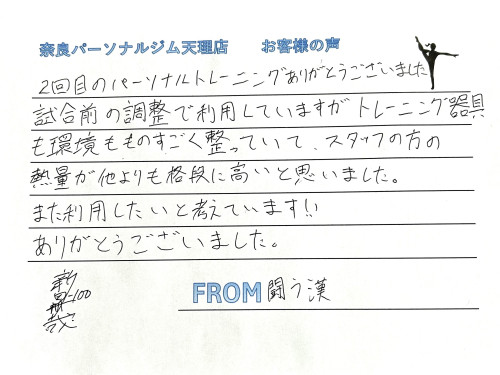 奈良パーソナルジム天理店 お客様の声
2回目のパーソナルトレーニングありがとうございました
試合前の調整で利用していますがトレーニング器具
も環境もものすごく整っていて、スタッフの方の
熱量が他よりも格段に高いと思いました。
また利用したいと考えています!!
ありがとうございました。
FROM 闘う漢